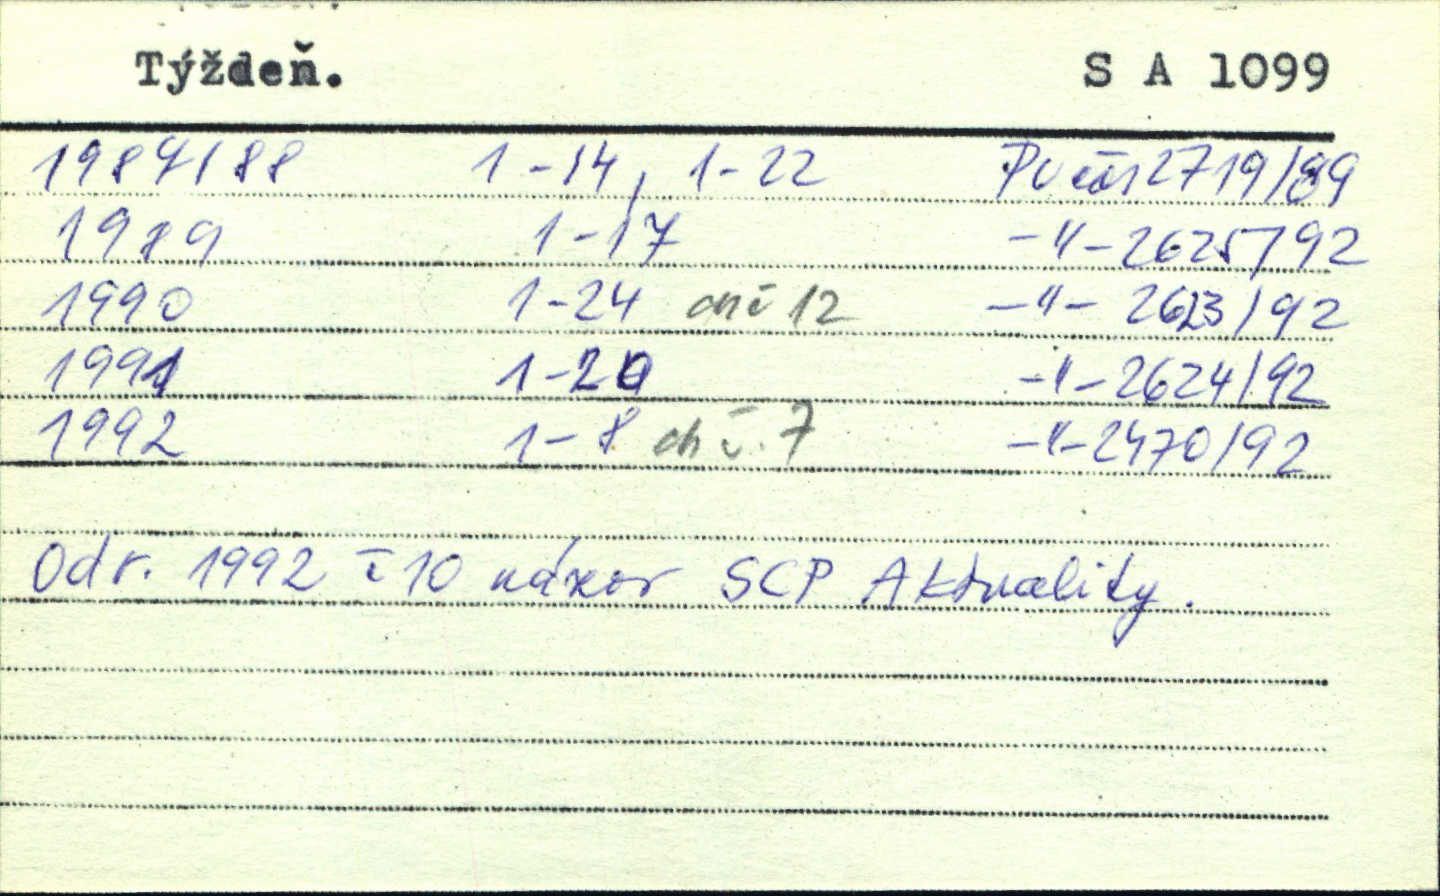 Týždeň. S A 1099
1987/88 1-14, 1-22 Pv čás 2719/89
1989 1-17 -"- 2625/92
1990 1-24 chč 12 -"- 2623/92
1991 1-20 -"- 2624/92
1992 1-8 ch č. 7 -"- 2470/92
Odr. 1992 č 10 názov SCP Aktuality.